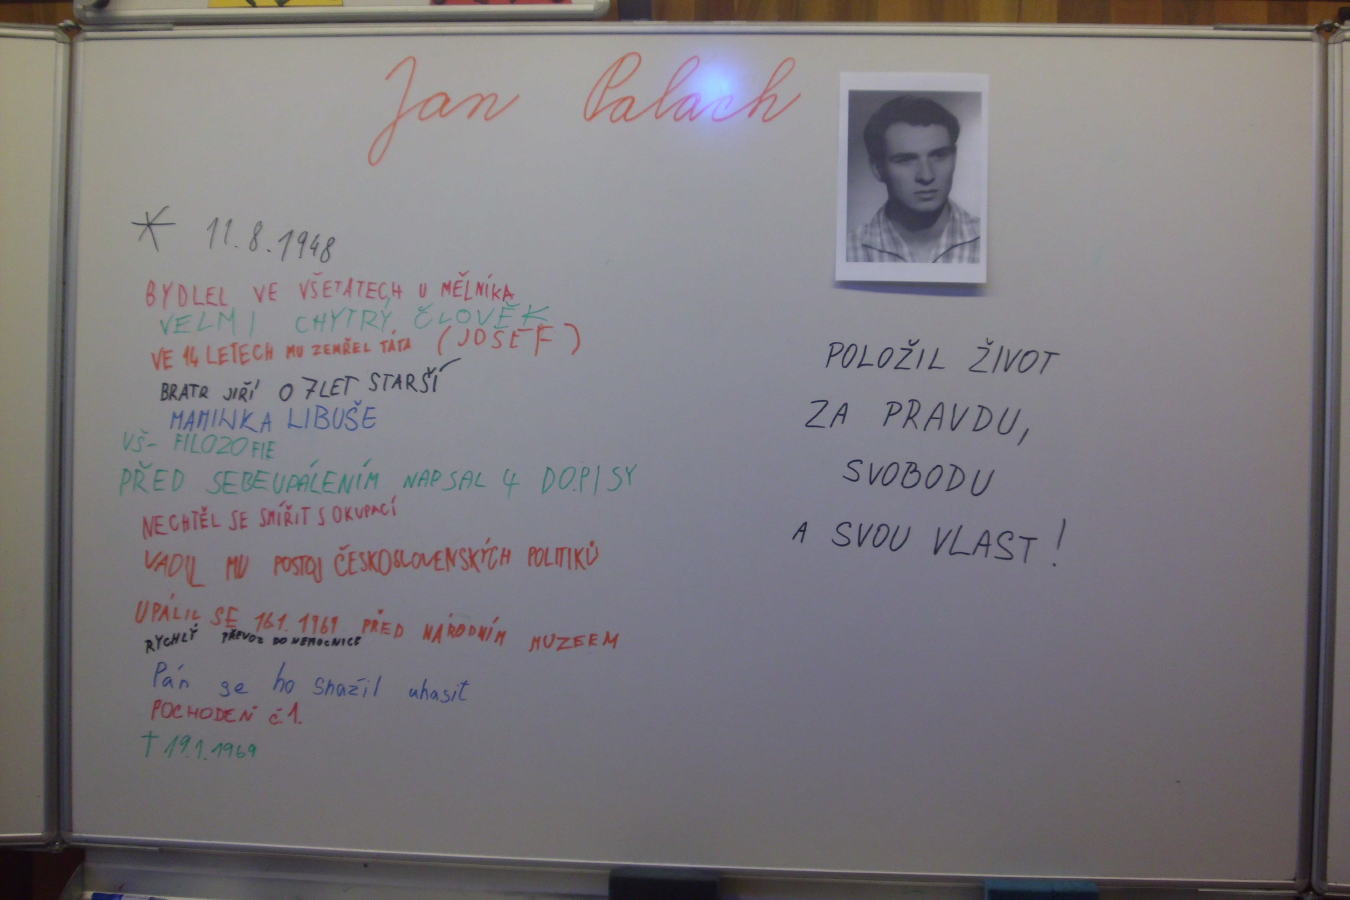 Jan Palach
* 11.8.1948
BYDLEL VE VŠETATECH U MĚLNÍKA
VELMI CHYTRÝ ČLOVĚK
VE 14 LETECH MU ZEMŘEL TÁTA (JOSEF)
BRATR JIŘÍ O 7LET STARŠÍ
MAMINKA LIBUŠE
VŠ- FILOZOFIE
PŘED SEBEUPÁLENÍM NAPSAL 4 DOPISY
NECHTĚL SE SMÍŘIT S OKUPACÍ
VADIL MU POSTOJ ČESKOSLOVENSKÝCH POLITIKŮ
UPÁLIL SE 16.1. 1969 PŘED NÁRODNÍM MUZEEM
RYCHLÝ PŘEVOZ DO NEMOCNICE
Pán se ho snažil uhasit
POCHODEŇ č1.
† 19.1.1969
POLOŽIL ŽIVOT
ZA PRAVDU,
SVOBODU
A SVOU VLAST!